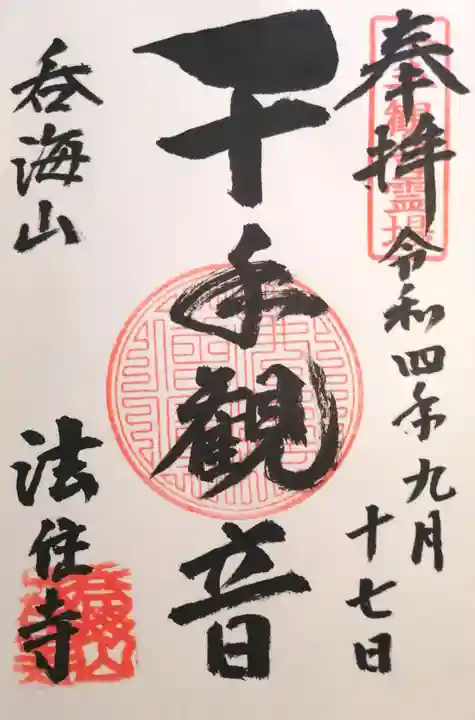 奉拝
令和四年九月
十七日
千手観音
呑海山
法住寺